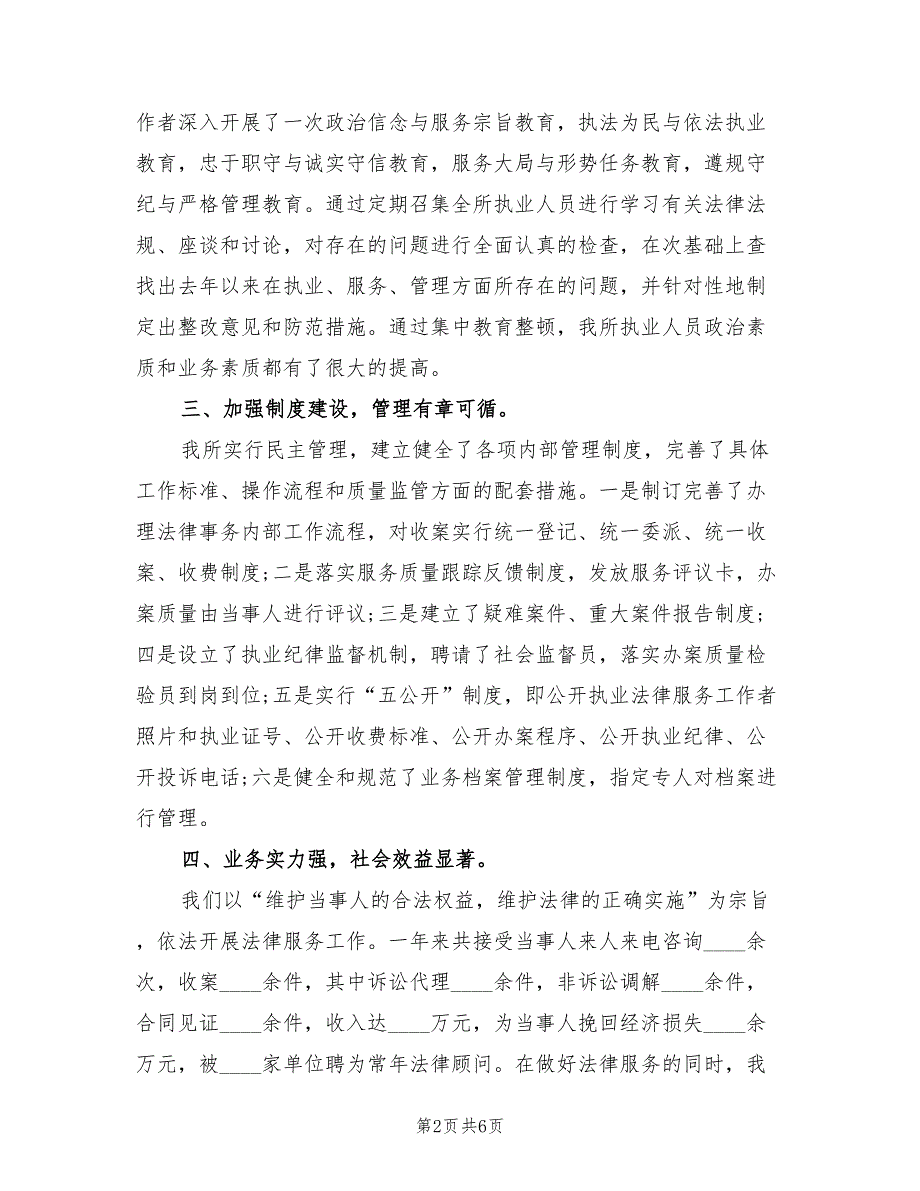 作者深入开展了一次政治信念与服务宗旨教育，执法为民与依法执业
教育，忠于职守与诚实守信教育，服务大局与形势任务教育，遵规守
纪与严格管理教育。通过定期召集全所执业人员进行学习有关法律法
规、座谈和讨论，对存在的问题进行全面认真的检查，在次基础上查
找出去年以来在执业、服务、管理方面所存在的问题，并针对性地制
定出整改意见和防范措施。通过集中教育整顿，我所执业人员政治素
质和业务素质都有了很大的提高。
三、加强制度建设，管理有章可循。
我所实行民主管理，建立健全了各项内部管理制度，完善了具体
工作标准、操作流程和质量监管方面的配套措施。一是制订完善了办
理法律事务内部工作流程，对收案实行统一登记、统一委派、统一收
案、收费制度;二是落实服务质量跟踪反馈制度，发放服务评议卡，办
案质量由当事人进行评议;三是建立了疑难案件、重大案件报告制度;
四是设立了执业纪律监督机制，聘请了社会监督员，落实办案质量检
验员到岗到位;五是实行“五公开”制度，即公开执业法律服务工作者
照片和执业证号、公开收费标准、公开办案程序、公开执业纪律、公
开投诉电话;六是健全和规范了业务档案管理制度，指定专人对档案进
行管理。
四、业务实力强，社会效益显著。
我们以“维护当事人的合法权益，维护法律的正确实施”为宗旨
，依法开展法律服务工作。一年来共接受当事人来人来电咨询____余
次，收案____余件，其中诉讼代理____余件，非诉讼调解____余件，
合同见证____余件，收入达____万元，为当事人挽回经济损失____余
万元，被____家单位聘为常年法律顾问。在做好法律服务的同时，我
第2页 共6页